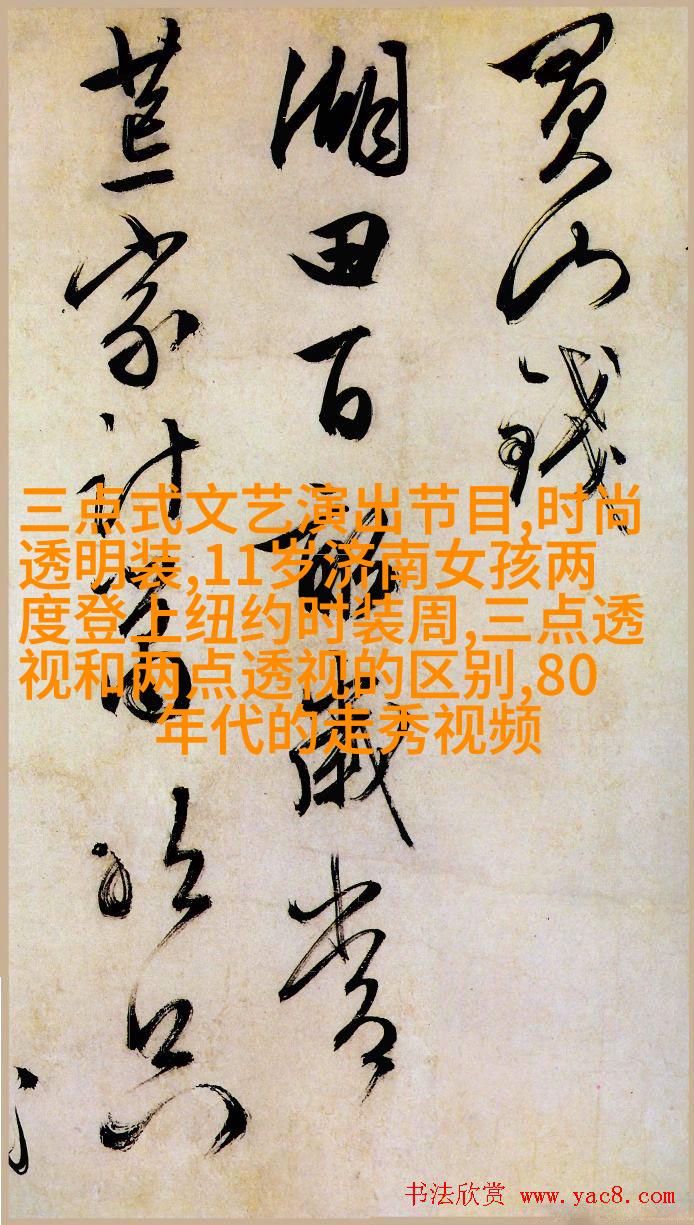 買山錢
湖田百歲常
荒家計只
三点式文艺演出节目,时尚
透明装,11岁济南女孩两
度登上纽约时装周,三点透
视和两点透视的区别,80
年代的走秀视频
书法欣赏 www.yac8.com